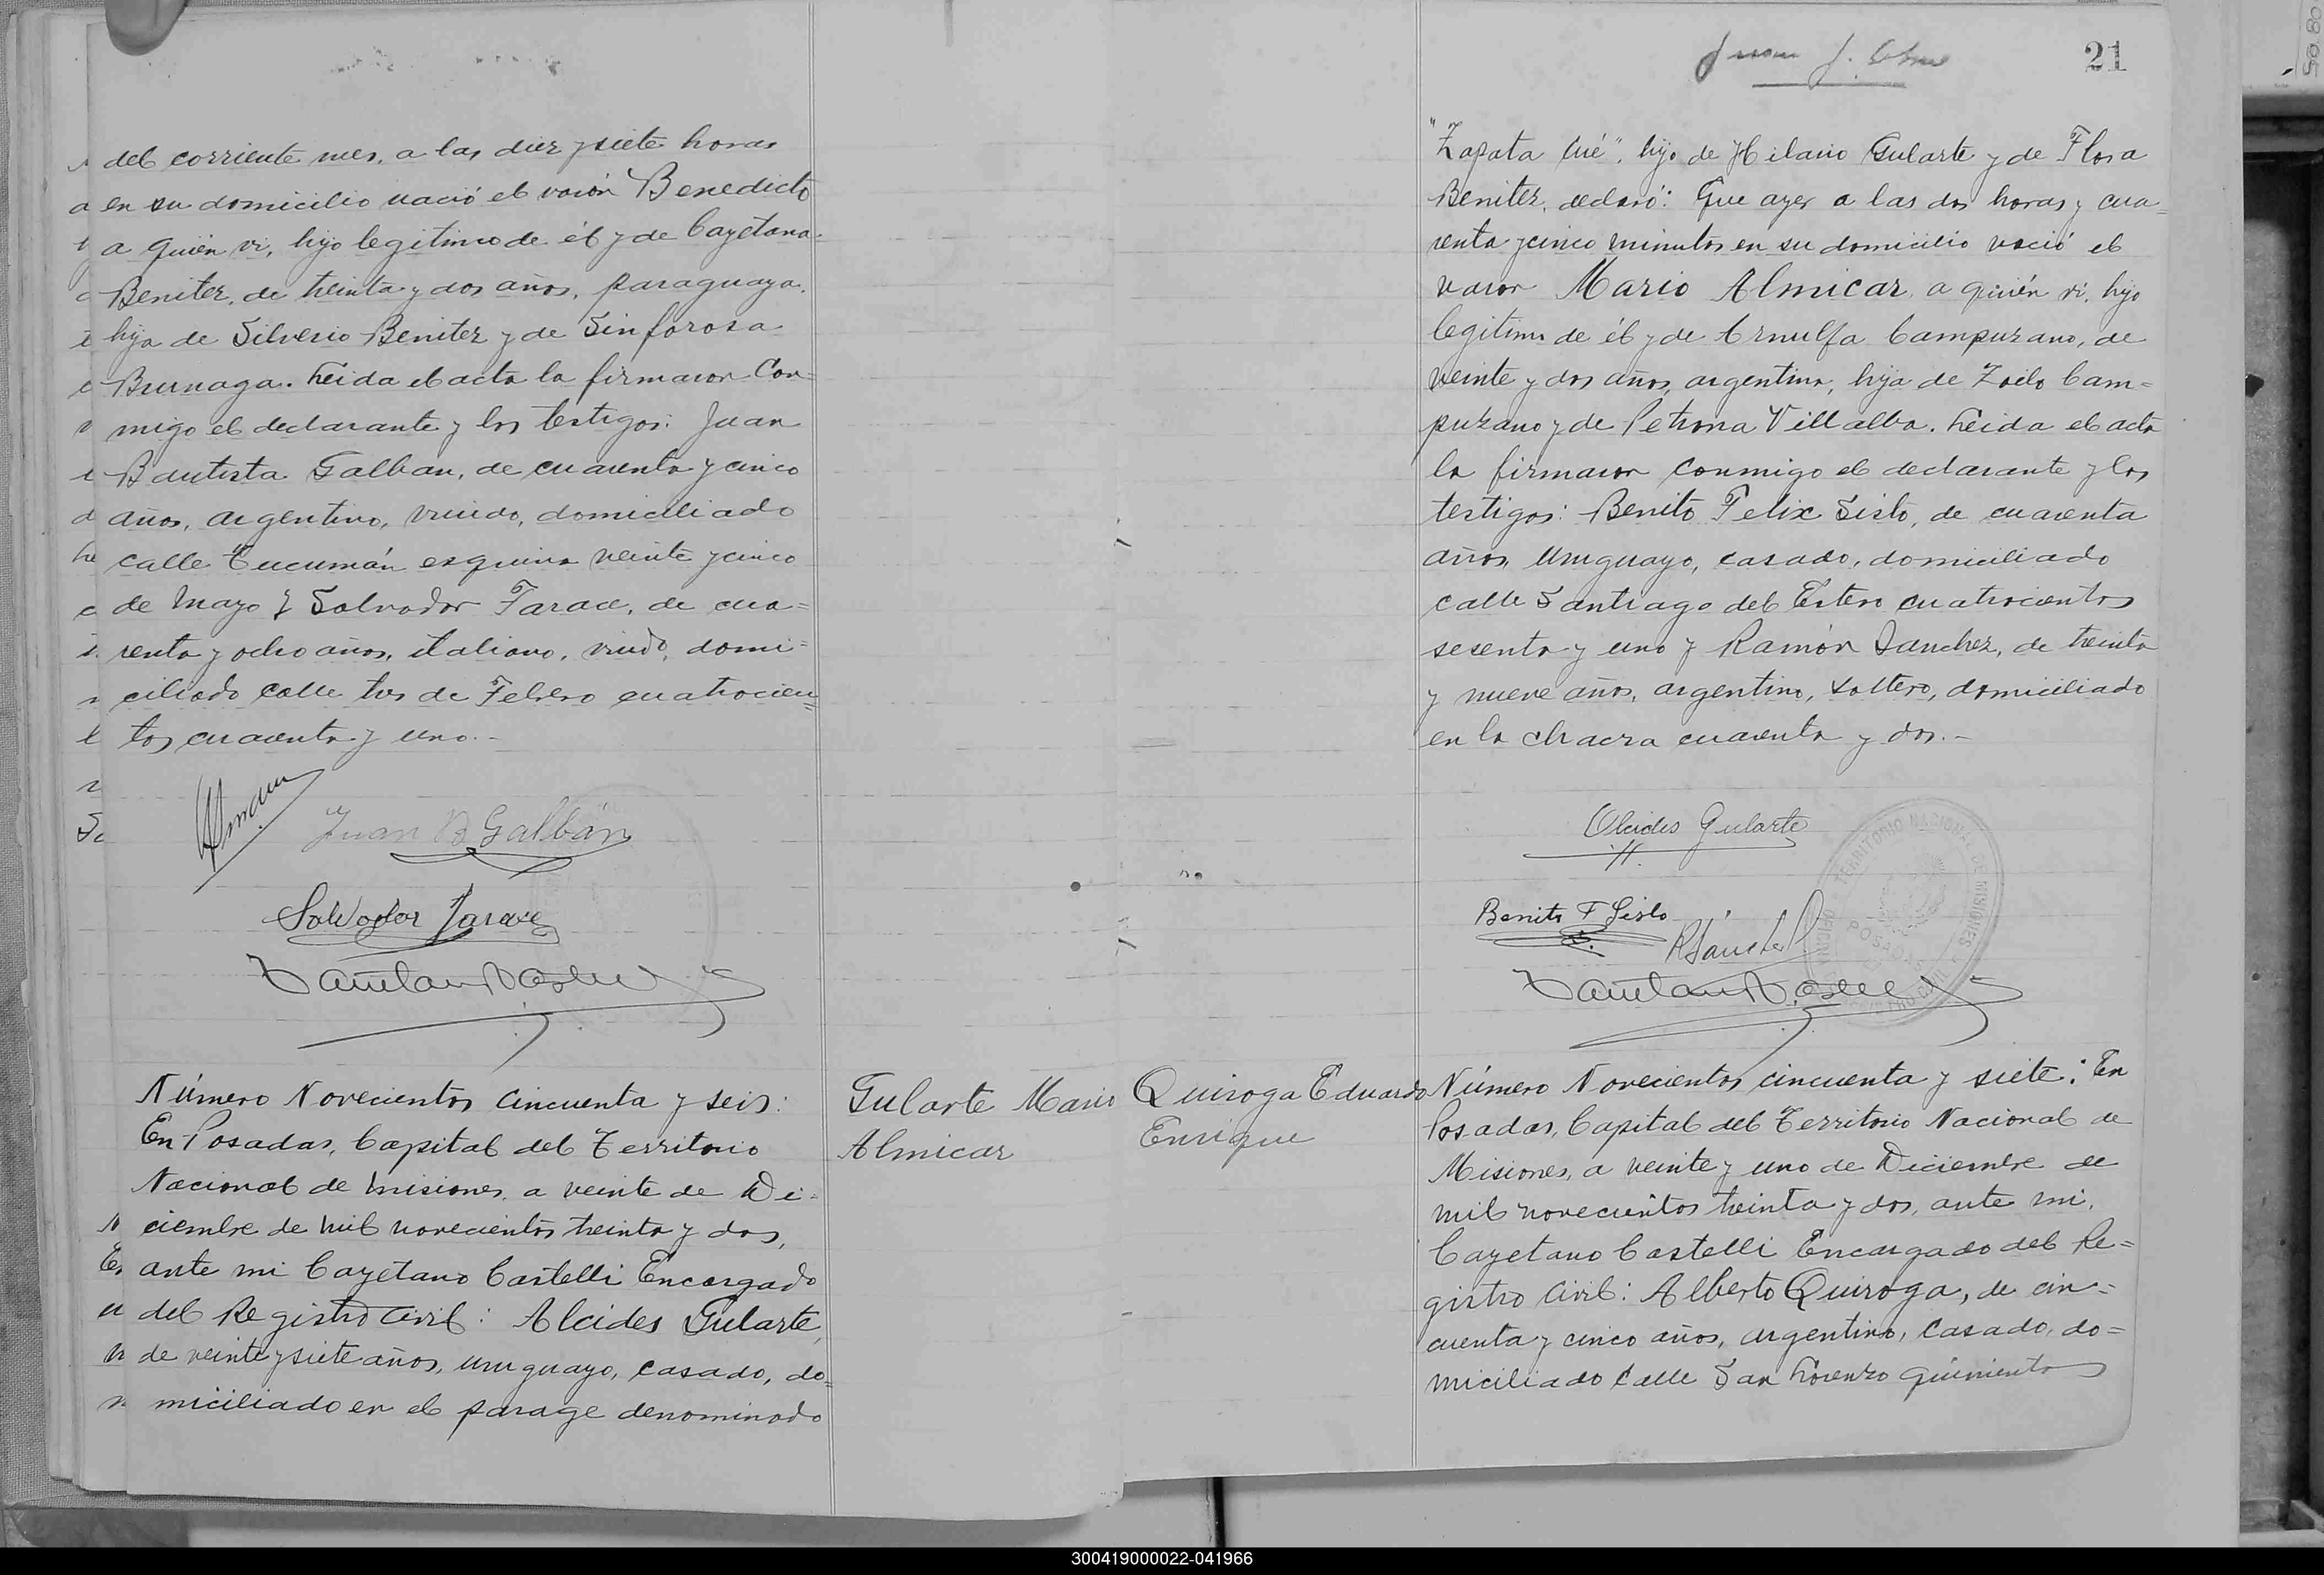 del corriente mes, a las diez y siete horas
en su domicilio nació el varón Benedicto
a quién vi, hijo legitimo de él y de Cayetana
Benitez, de treinta y dos años, paraguaya,
hija de Silverio Benitez y de Sinforosa
Burnaga. Leida el acta la firmaron con=
migo el declarante y los testigos: Juan
Bautista Galban, de cuarenta y cinco
años, argentino, viudo, domiciliado
calle Tucumán esquina veinte y cinco
de Mayo y Salvador Farace, de cua=
renta y ocho años, italiano, viudo, domi=
ciliado calle tres de Febrero cuatrocien=
tos cuarenta y uno.-
Juan B Galbán
Salvador Farace
Número Novecientos cincuenta y seis:
En Posadas, Capital del Territorio
Nacional de Misiones, a veinte de Di=
ciembre de mil novecientos treinta y dos,
ante mi Cayetano Castelli Encargado
del Registro Civil: Alcides Gularte,
de veinte y siete años, uruguayo, casado, do=
miciliado en el parage denominado
Gularte Mario
Almicar
21
"Zapata Cué", hijo de Hilario Gularte y de Flora
Benitez, declaró: Que ayer a las dos horas y cua=
renta y cinco minutos en su domicilio nació el
varon Mario Almicar, a quién vi, hijo
legitimo de él y de Arnulfa Campuzano, de
veinte y dos años, argentina, hija de Zoilo Cam=
puzano y de Petrona Villalba. Leida el acta
la firmaron conmigo el declarante y los
testigos: Benito Felix Sisto, de cuarenta
años, uruguayo, casado, domiciliado
calle Santiago del Estero cuatrocientos
sesenta y uno y Ramón Sanchez, de treinta
y nueve años, argentino, soltero, domiciliado
en la chacra cuarenta y dos.-
Alcides Gularte
Benito F Sisto
RSanchez
TERRITORIO NACIONAL DE MISIONES
POSADAS
Quiroga Eduardo
Enrique
Número Novecientos cincuenta y siete: En
Posadas, Capital del Territorio Nacional de
Misiones, a veinte y uno de Diciembre de
mil novecientos treinta y dos, ante mi,
Cayetano Castelli Encargado del Re=
gistro Civil: Alberto Quiroga, de cin=
cuenta y cinco años, argentino, casado, do=
miciliado calle San Lorenzo quinientos
300419000022-041966